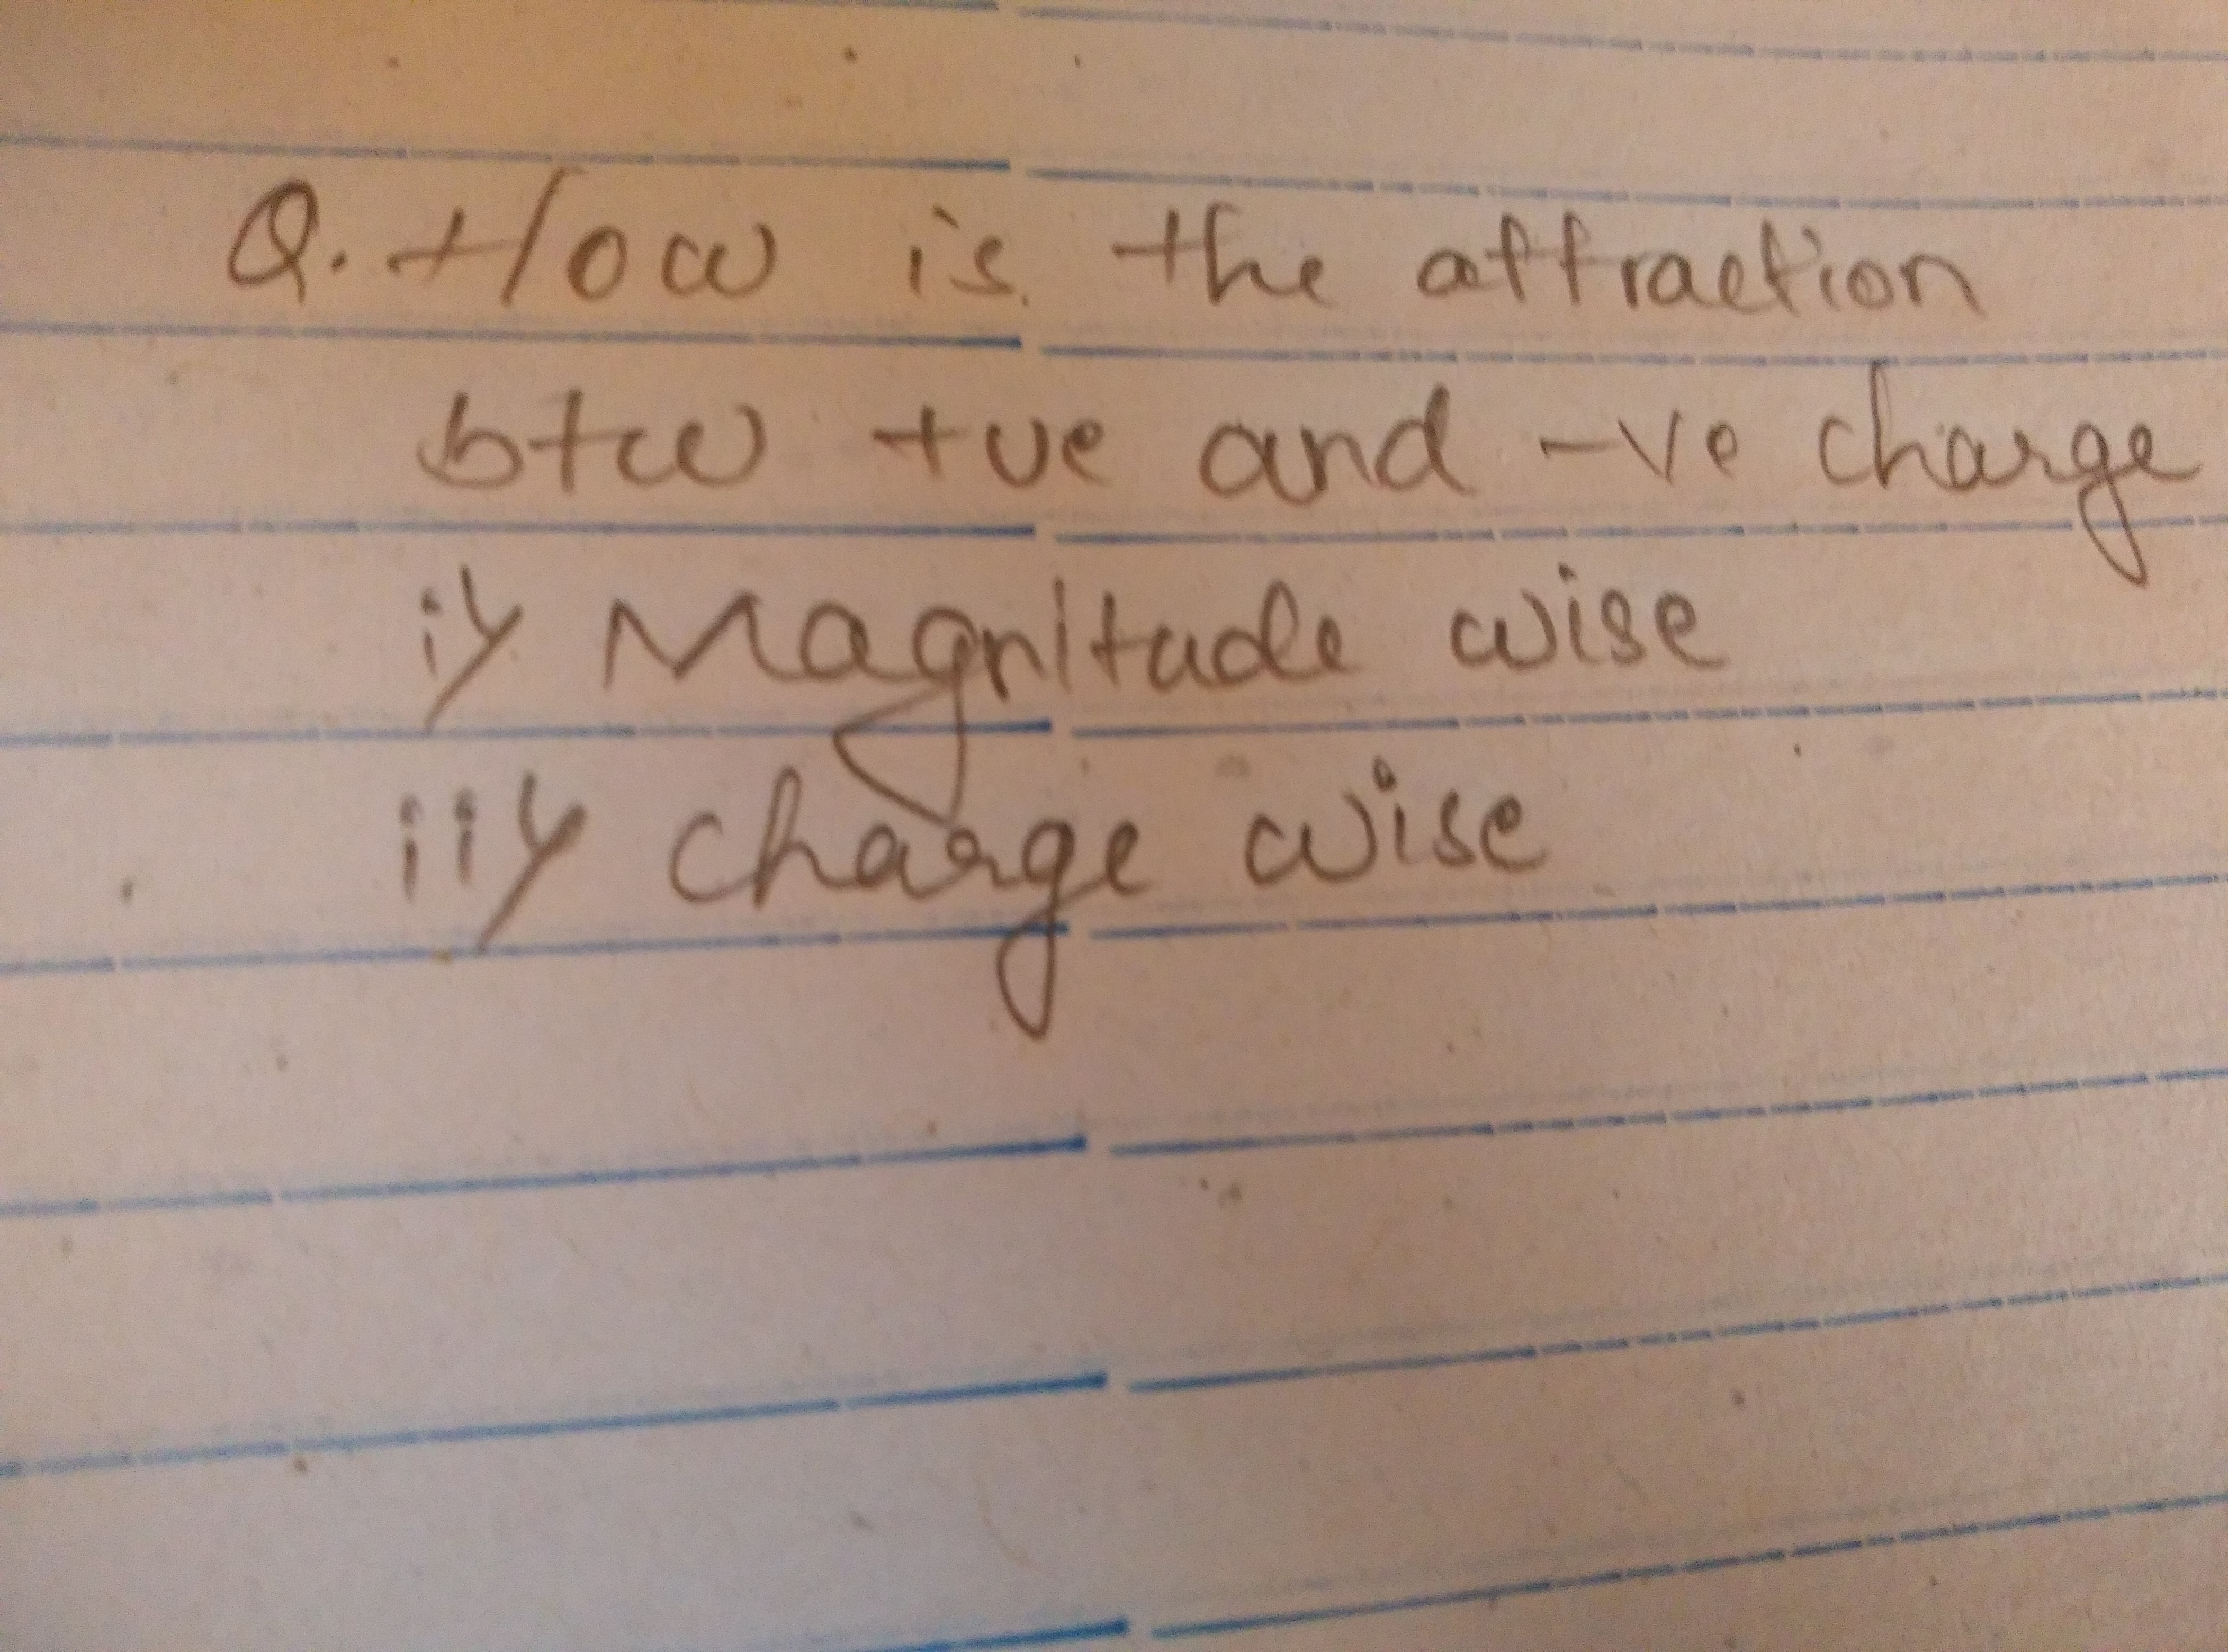 Q. How is the attraction
btw +ve and -ve charge
i) Magnitude wise
ii) charge wise